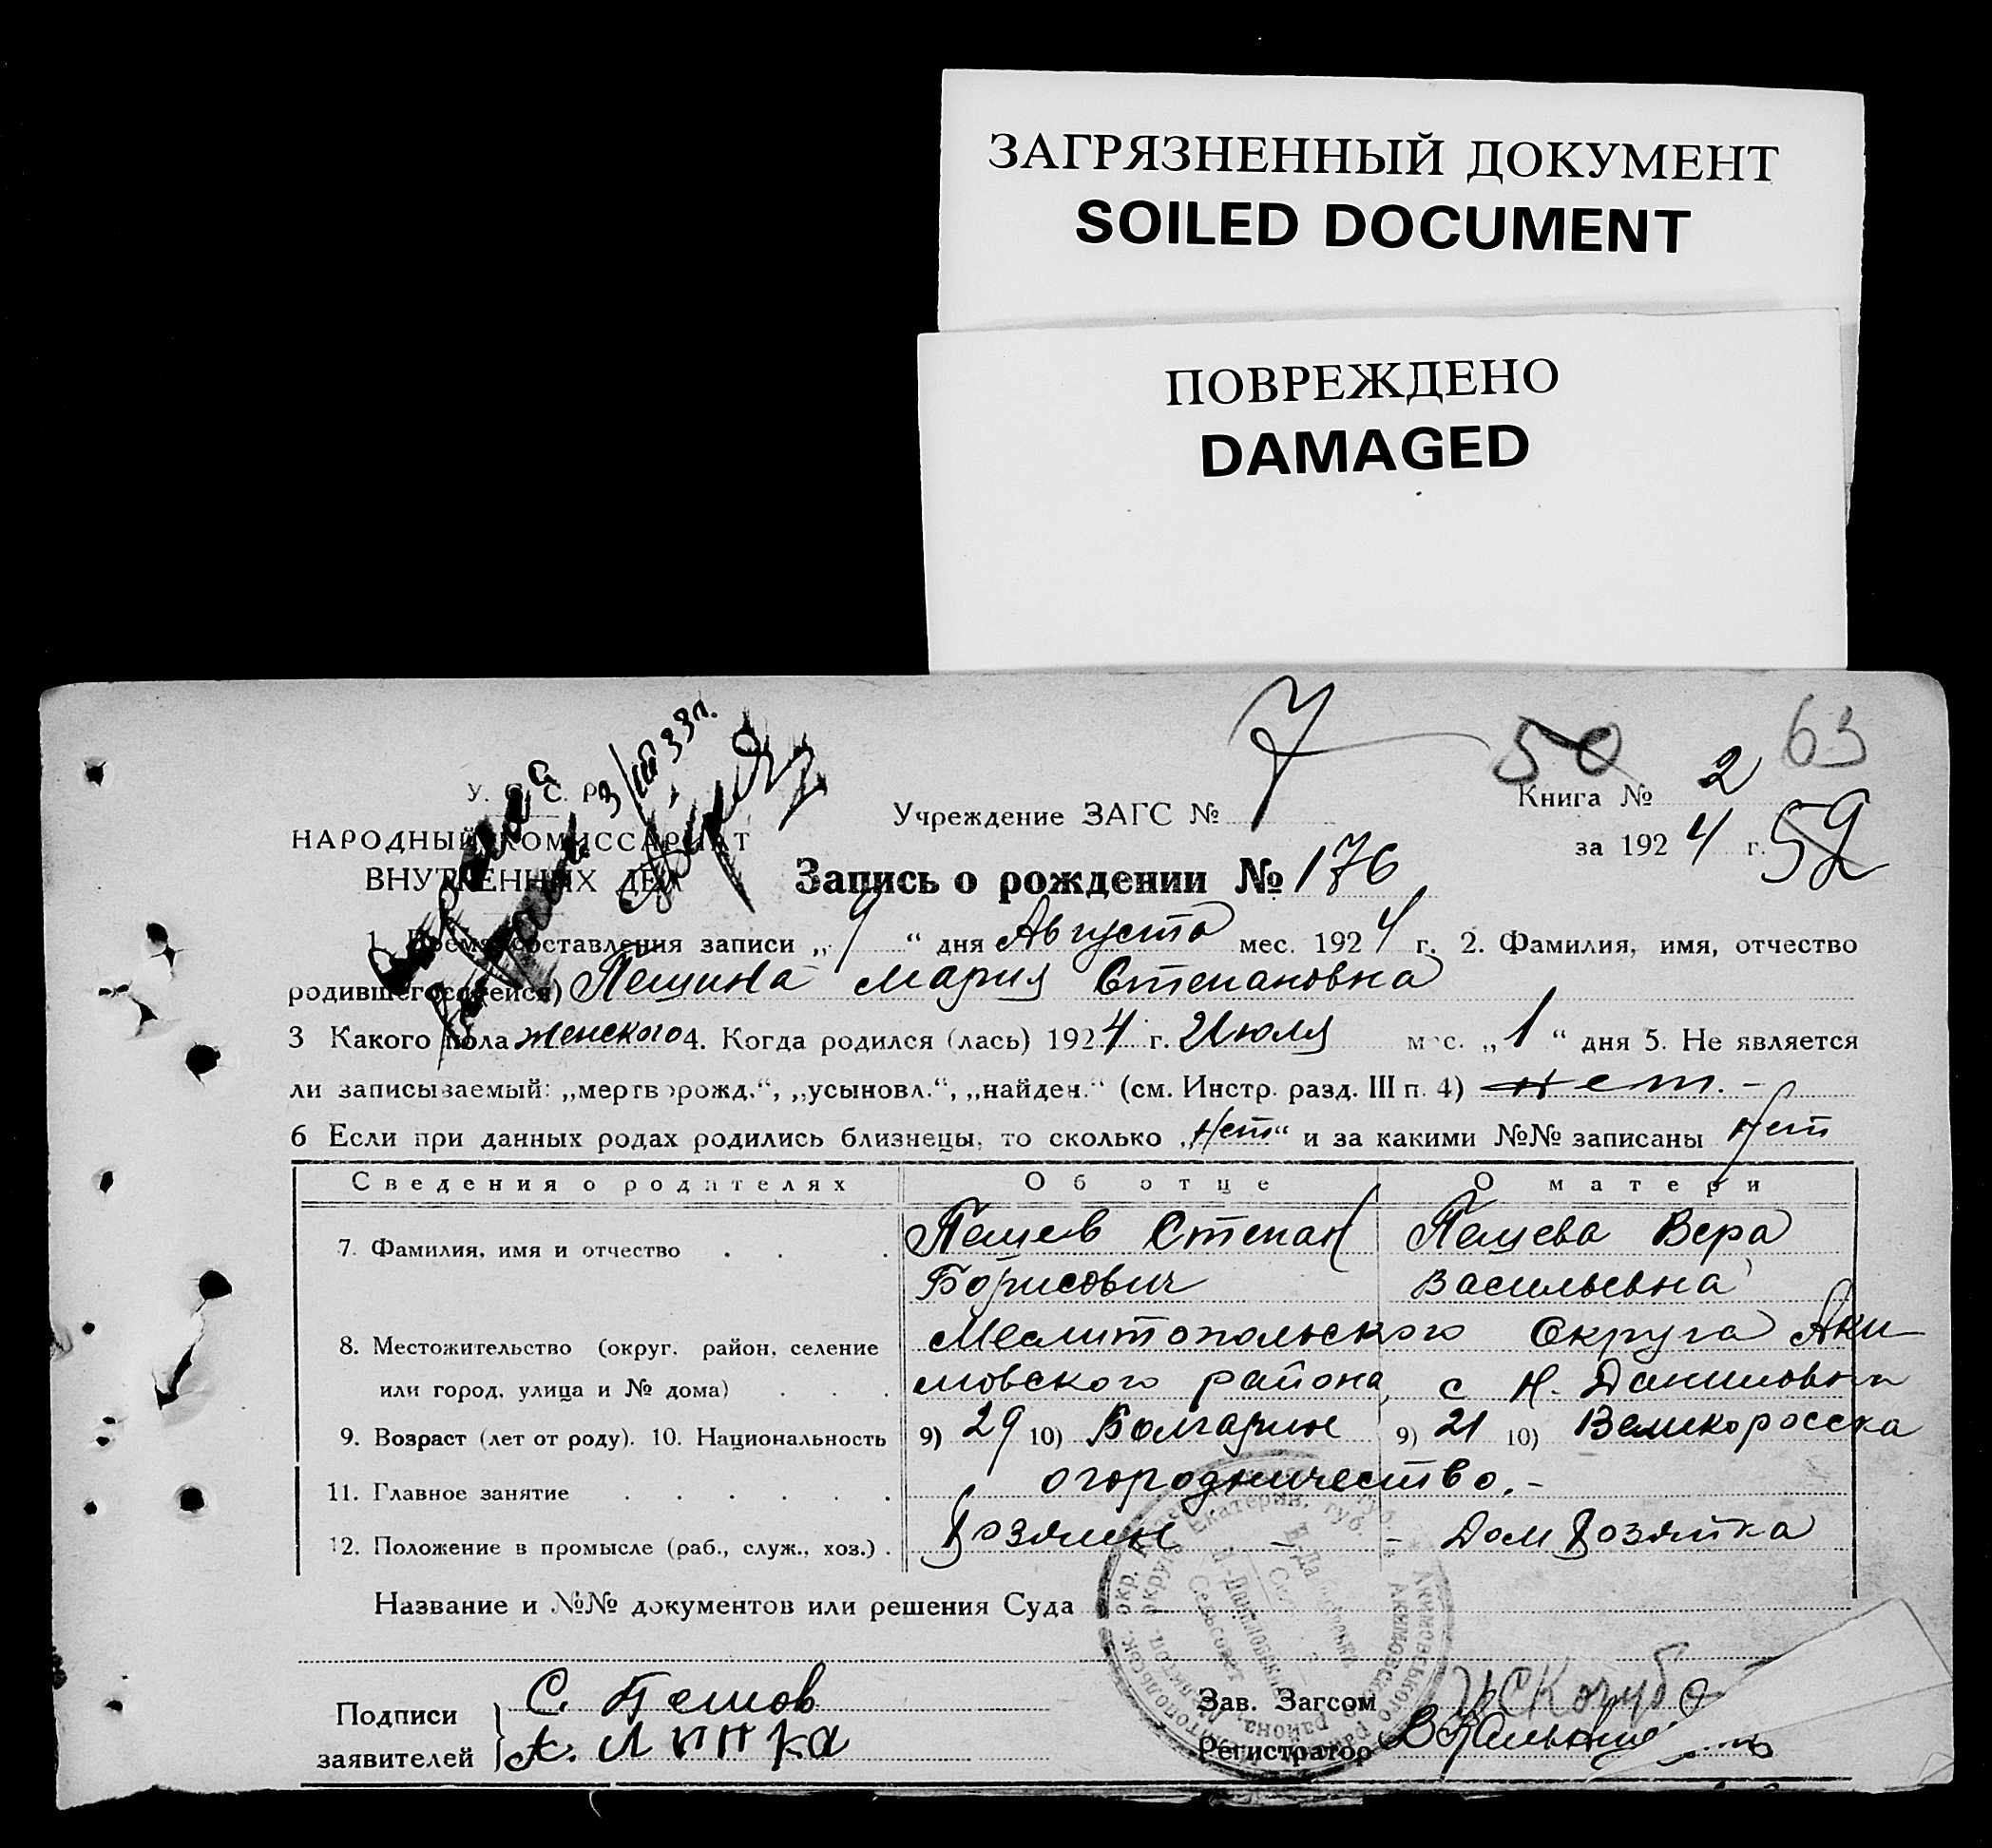 ЗАГРЯЗНЕННЫЙ ДОКУМЕНТ
SOILED DOCUMENT
ПОВРЕЖДЕНО
DAMAGED
7 50 63
У. С. С. Р.
Учреждение ЗАГС №
Книга № 2
НАРОДНЫЙ КОМИССАРИАТ
за 1924 г. 59
ВНУТРЕННИХ ДЕЛ
Запись о рождении № 176
1. Время составления записи „9“ дня Августа мес. 1924 г. 2. Фамилия, имя, отчество
родившегося(ейся) Пешина Мария Степановна
3 Какого пола женского 4. Когда родился (лась) 1924 г. Июля мес. „1“ дня 5. Не является
ли записываемый: „мертворожд.“, „усыновл.“, „найден.“ (см. Инстр. разд. III п. 4) нет.-
6 Если при данных родах родились близнецы, то сколько „нет“ и за какими №№ записаны нет
Сведения о родителях Об отце О матери
7. Фамилия, имя и отчество Пешев Степан Пешева Вера
Борисович Васильевна
8. Местожительство (округ, район, селение Мелитопольского Округа Аки-
или город, улица и № дома) мовского района, с Н. Даниловка
9. Возраст (лет от роду). 10. Национальность 9) 29 10) Болгарин 9) 21 10) Великоросска
11. Главное занятие огородничество.-
12. Положение в промысле (раб., служ., хоз.) Хозяин - - Дом Хозяйка
Название и №№ документов или решения Суда
Подписи С. Пешов Зав. Загсом
заявителей А. Липка Регистратор